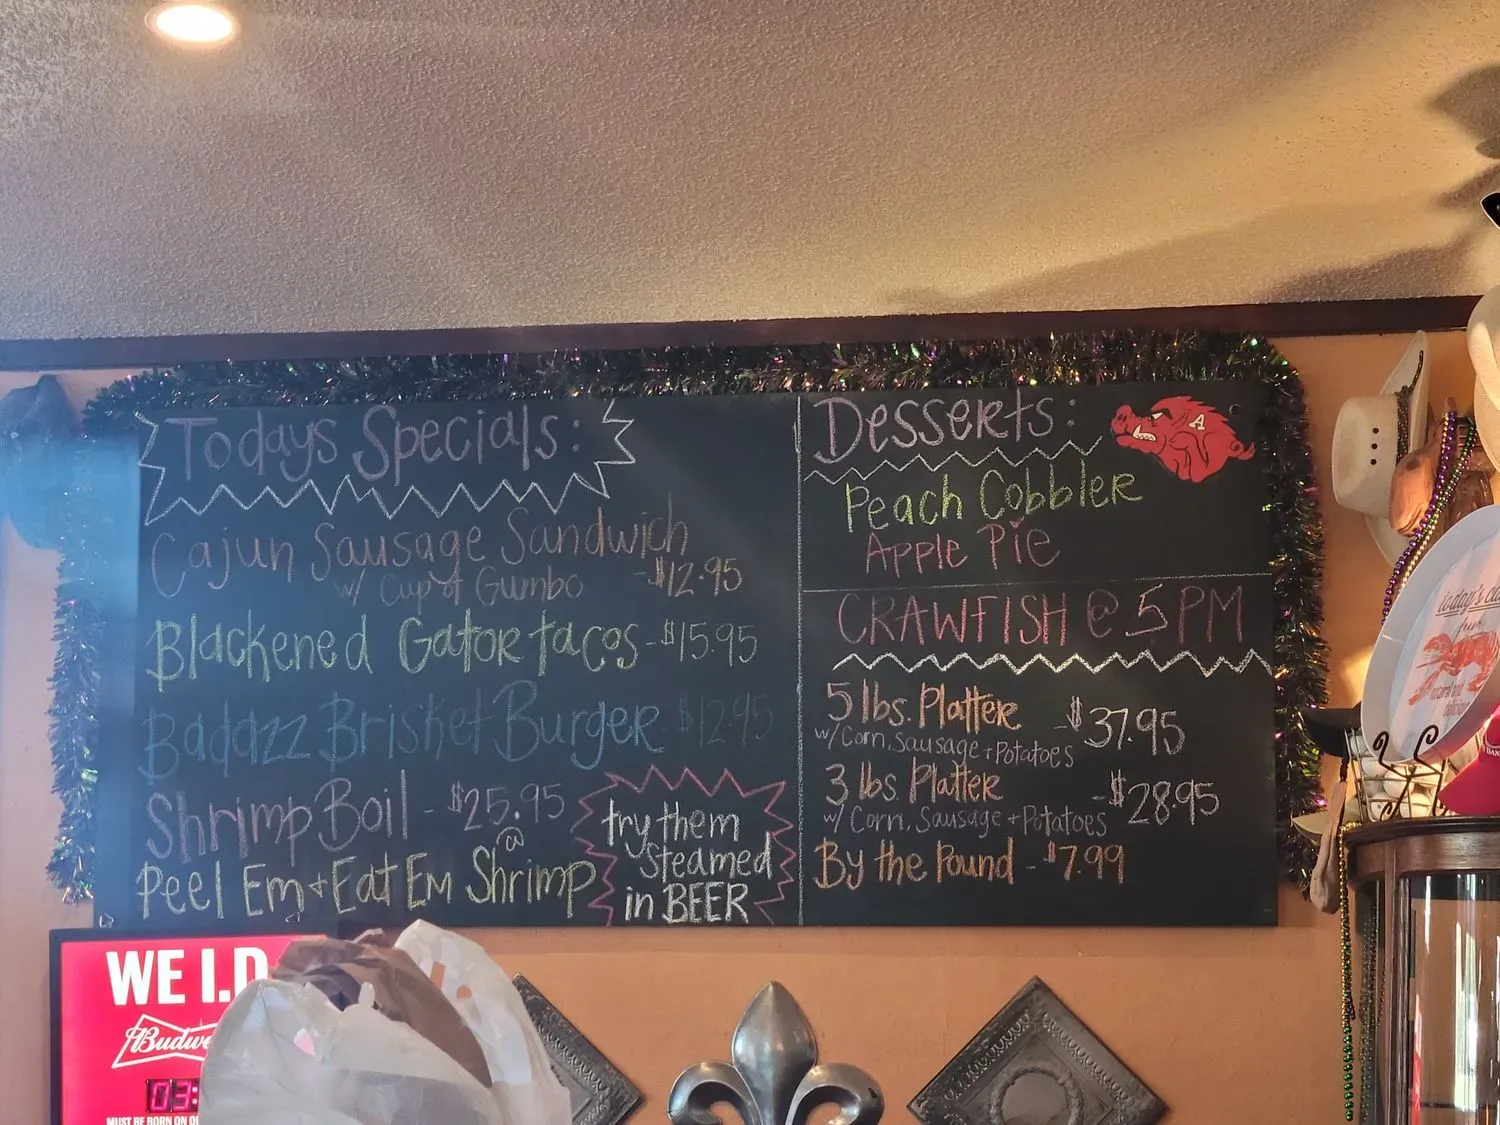 Todays Specials:
Cajun Sausage Sandwich
w/ Cup of Gumbo -$12.95
Blackened Gator tacos-$15.95
Badazz Brisket Burger $12.95
Shrimp Boil - $25.95
@
Peel Em + Eat Em Shrimp
try them
steamed
in BEER
Desserts:
A
Peach Cobbler
Apple Pie
CRAWFISH @ 5PM
5 lbs. Platter -$37.95
w/ Corn, Sausage + Potatoes
3 lbs. Platter -$28.95
w/ Corn, Sausage + Potatoes
By the Pound - $7.99
today's
fresh
WE I.D
Budwe
03:
MUST BE BORN ON O